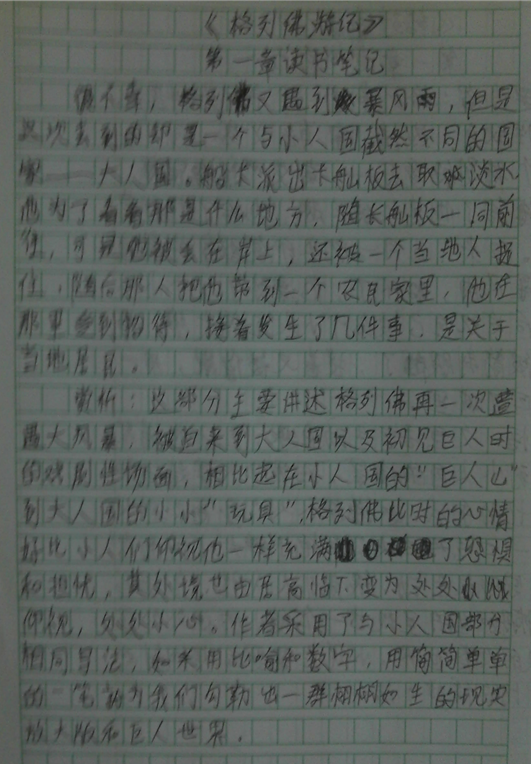 《格列佛游记》
第一章读书笔记
很不幸，格列佛又遇到暴风雨，但是
这次去到的却是一个与小人国截然不同的国
家——大人国。船长派出长舢板去取淡水
他为了看看那是什么地方，随长舢板一同前
往，可是他被丢在岸上，还被一个当地人捉
住，随后那人把他带到一个农民家里，他在
那里受到招待，接着发生了几件事，是关于
当地居民。
赏析：这部分主要讲述格列佛再一次遭
遇大风暴，被迫来到大人国以及初见巨人时
的戏剧性场面，相比起在小人国的“巨人山”
到大人国的小小“玩具”，格列佛此时的心情
好比小人们仰视他一样充满了恐惧
和担忧，其处境也由居高临下变为处处
仰视，处处小心。作者采用了与小人国部分
相同写法，如采用比喻和数字，用简简单单
的一笔就为我们勾勒出一群栩栩如生的现实
放大版和巨人世界。